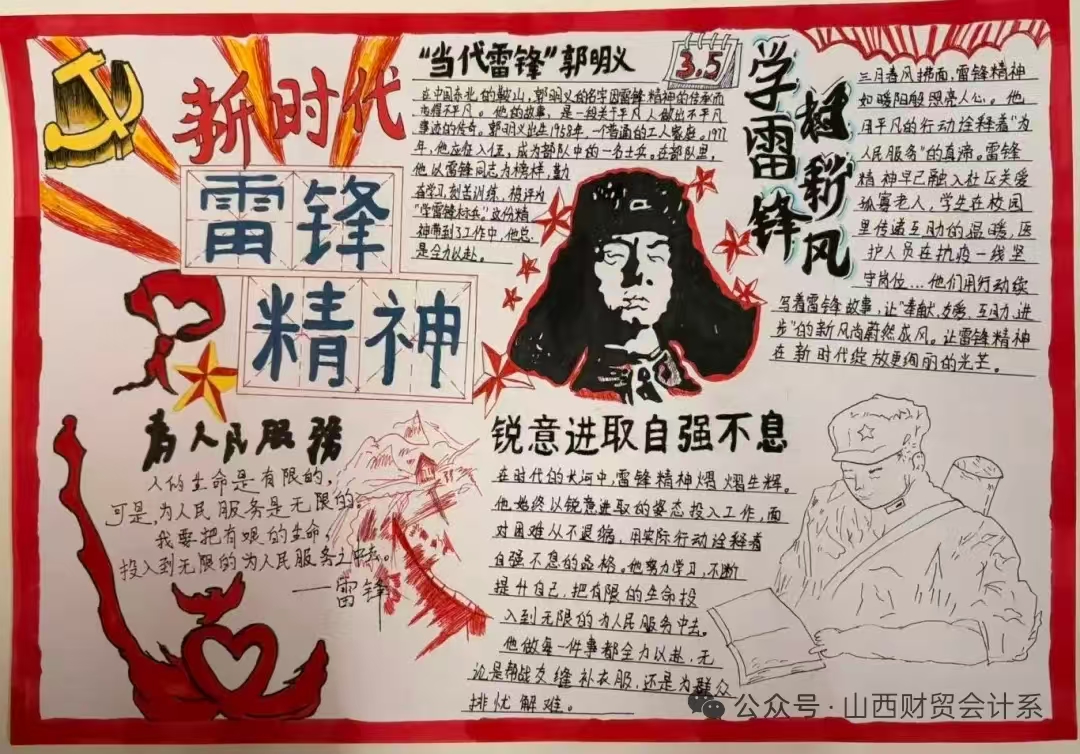 新时代
雷锋
精神
"当代雷锋"郭明义
在中国东北的鞍山,郭明义的名字因雷锋精神的传承而
变得不平凡。他的故事,是一段关于平凡人做出不平凡
事迹的传奇。郭明义出生1958年,一个普通的工人家庭。1977
年,他应征入伍,成为部队中的一名士兵。在部队里,
他以雷锋同志为榜样,勤
奋学习,刻苦训练,被评为
"学雷锋标兵"。这份精
神带到了工作中,他总
是全力以赴。
3.5
学雷锋
树新风
三月春风拂面,雷锋精神
如暖阳般照亮人心。他
用平凡的行动诠释着"为
人民服务"的真谛。雷锋
精神早已融入社区关爱
孤寡老人,学生在校园
里传递互助的温暖,医
护人员在抗疫一线坚
守岗位...他们用行动续
写着雷锋故事,让"奉献、友爱、互助、进
步"的新风尚蔚然成风。让雷锋精神
在新时代绽放更绚丽的光芒。
为人民服务
人的生命是有限的,
可是,为人民服务是无限的。
我要把有限的生命,
投入到无限的为人民服务之中去。
——雷锋
锐意进取自强不息
在时代的长河中,雷锋精神熠熠生辉。
他始终以锐意进取的姿态投入工作,面
对困难从不退缩,用实际行动诠释着
自强不息的品格。他努力学习,不断
提升自己,把有限的生命投
入到无限的为人民服务中去。
他做每一件事都全力以赴,无
论是帮战友缝补衣服,还是为群众
排忧解难。
公众号·山西财贸会计系